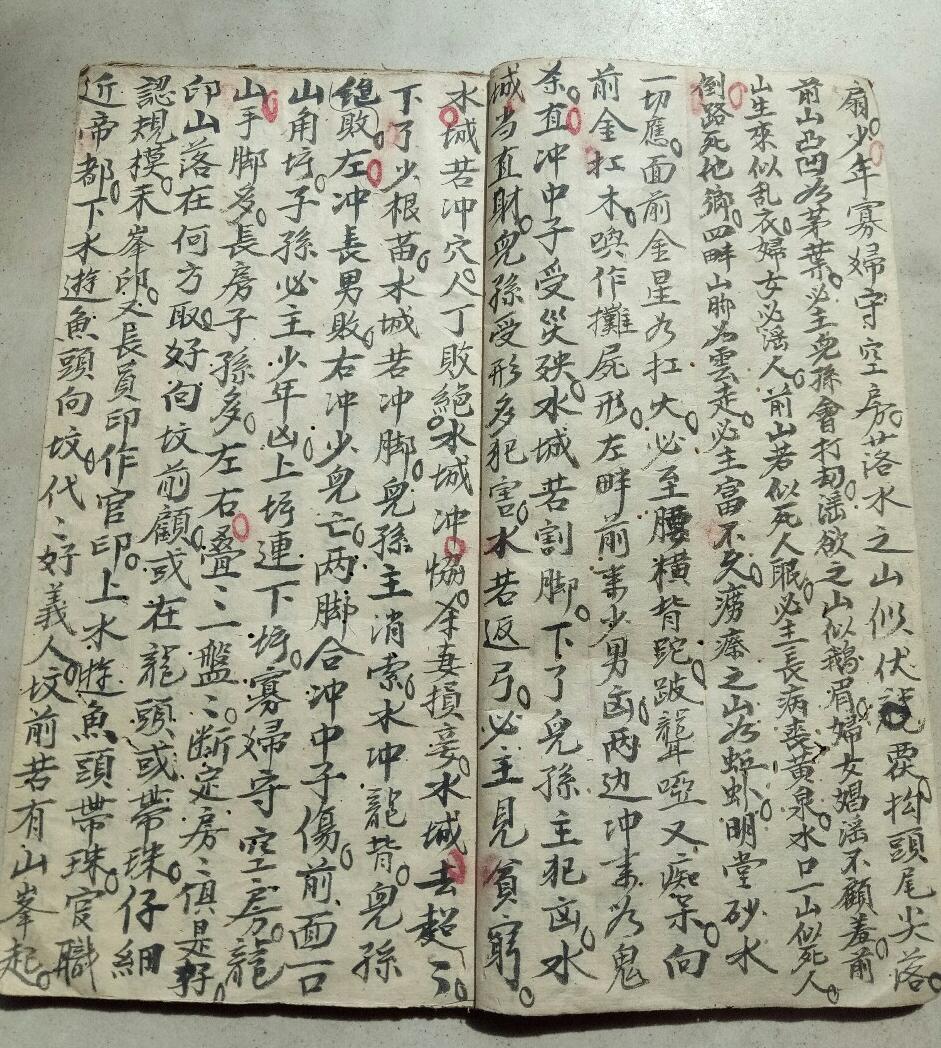 扇少年寡婦守空房落水之山似伏龍覆拘頭尾尖落
前山凸凹为茅葉必主兒孫會打刧滛欲之山似鵝眉婦女娼滛不顧羞前
山生來似乱衣婦女必滛人前山若似死人眠必主長病喪黃泉水口一山似死人
倒路死他鄉四畔山脚为雲走必主富不久癆瘵之山为蚯蚓明堂砂水
一切應面前金星为扛火必至腰橫背跎跛聾啞又痴呆向
前金扛木喚作攤屍形左畔前来少男凶两边冲来为鬼
杀直冲中子受災殃水城若割脚下了兒孫主犯凶水
城当直財兒孫受形多犯害水若返弓必主見貧窮
水城若冲穴人丁敗絕水城冲恊杀妻損妾水城去超〻
下了少根苗水城若冲脚兒孫主消索水冲龍背兒孫
絕敗左冲長男敗右冲少兒亡两脚合冲中子傷前面百
山角圬子孫必主少年凶上圬連下圬寡婦守空房龍
山手脚多長房子孫多左右叠〻二盤〻断定房〻俱是好
印山落在何方取好向坟前顧或在龍頭或帶珠仔細
認規模禾峯邱又長員印作官印上水遊魚頭帶珠官職
近帝都下水遊魚頭向坟代〻好義人坟前若有山峯起